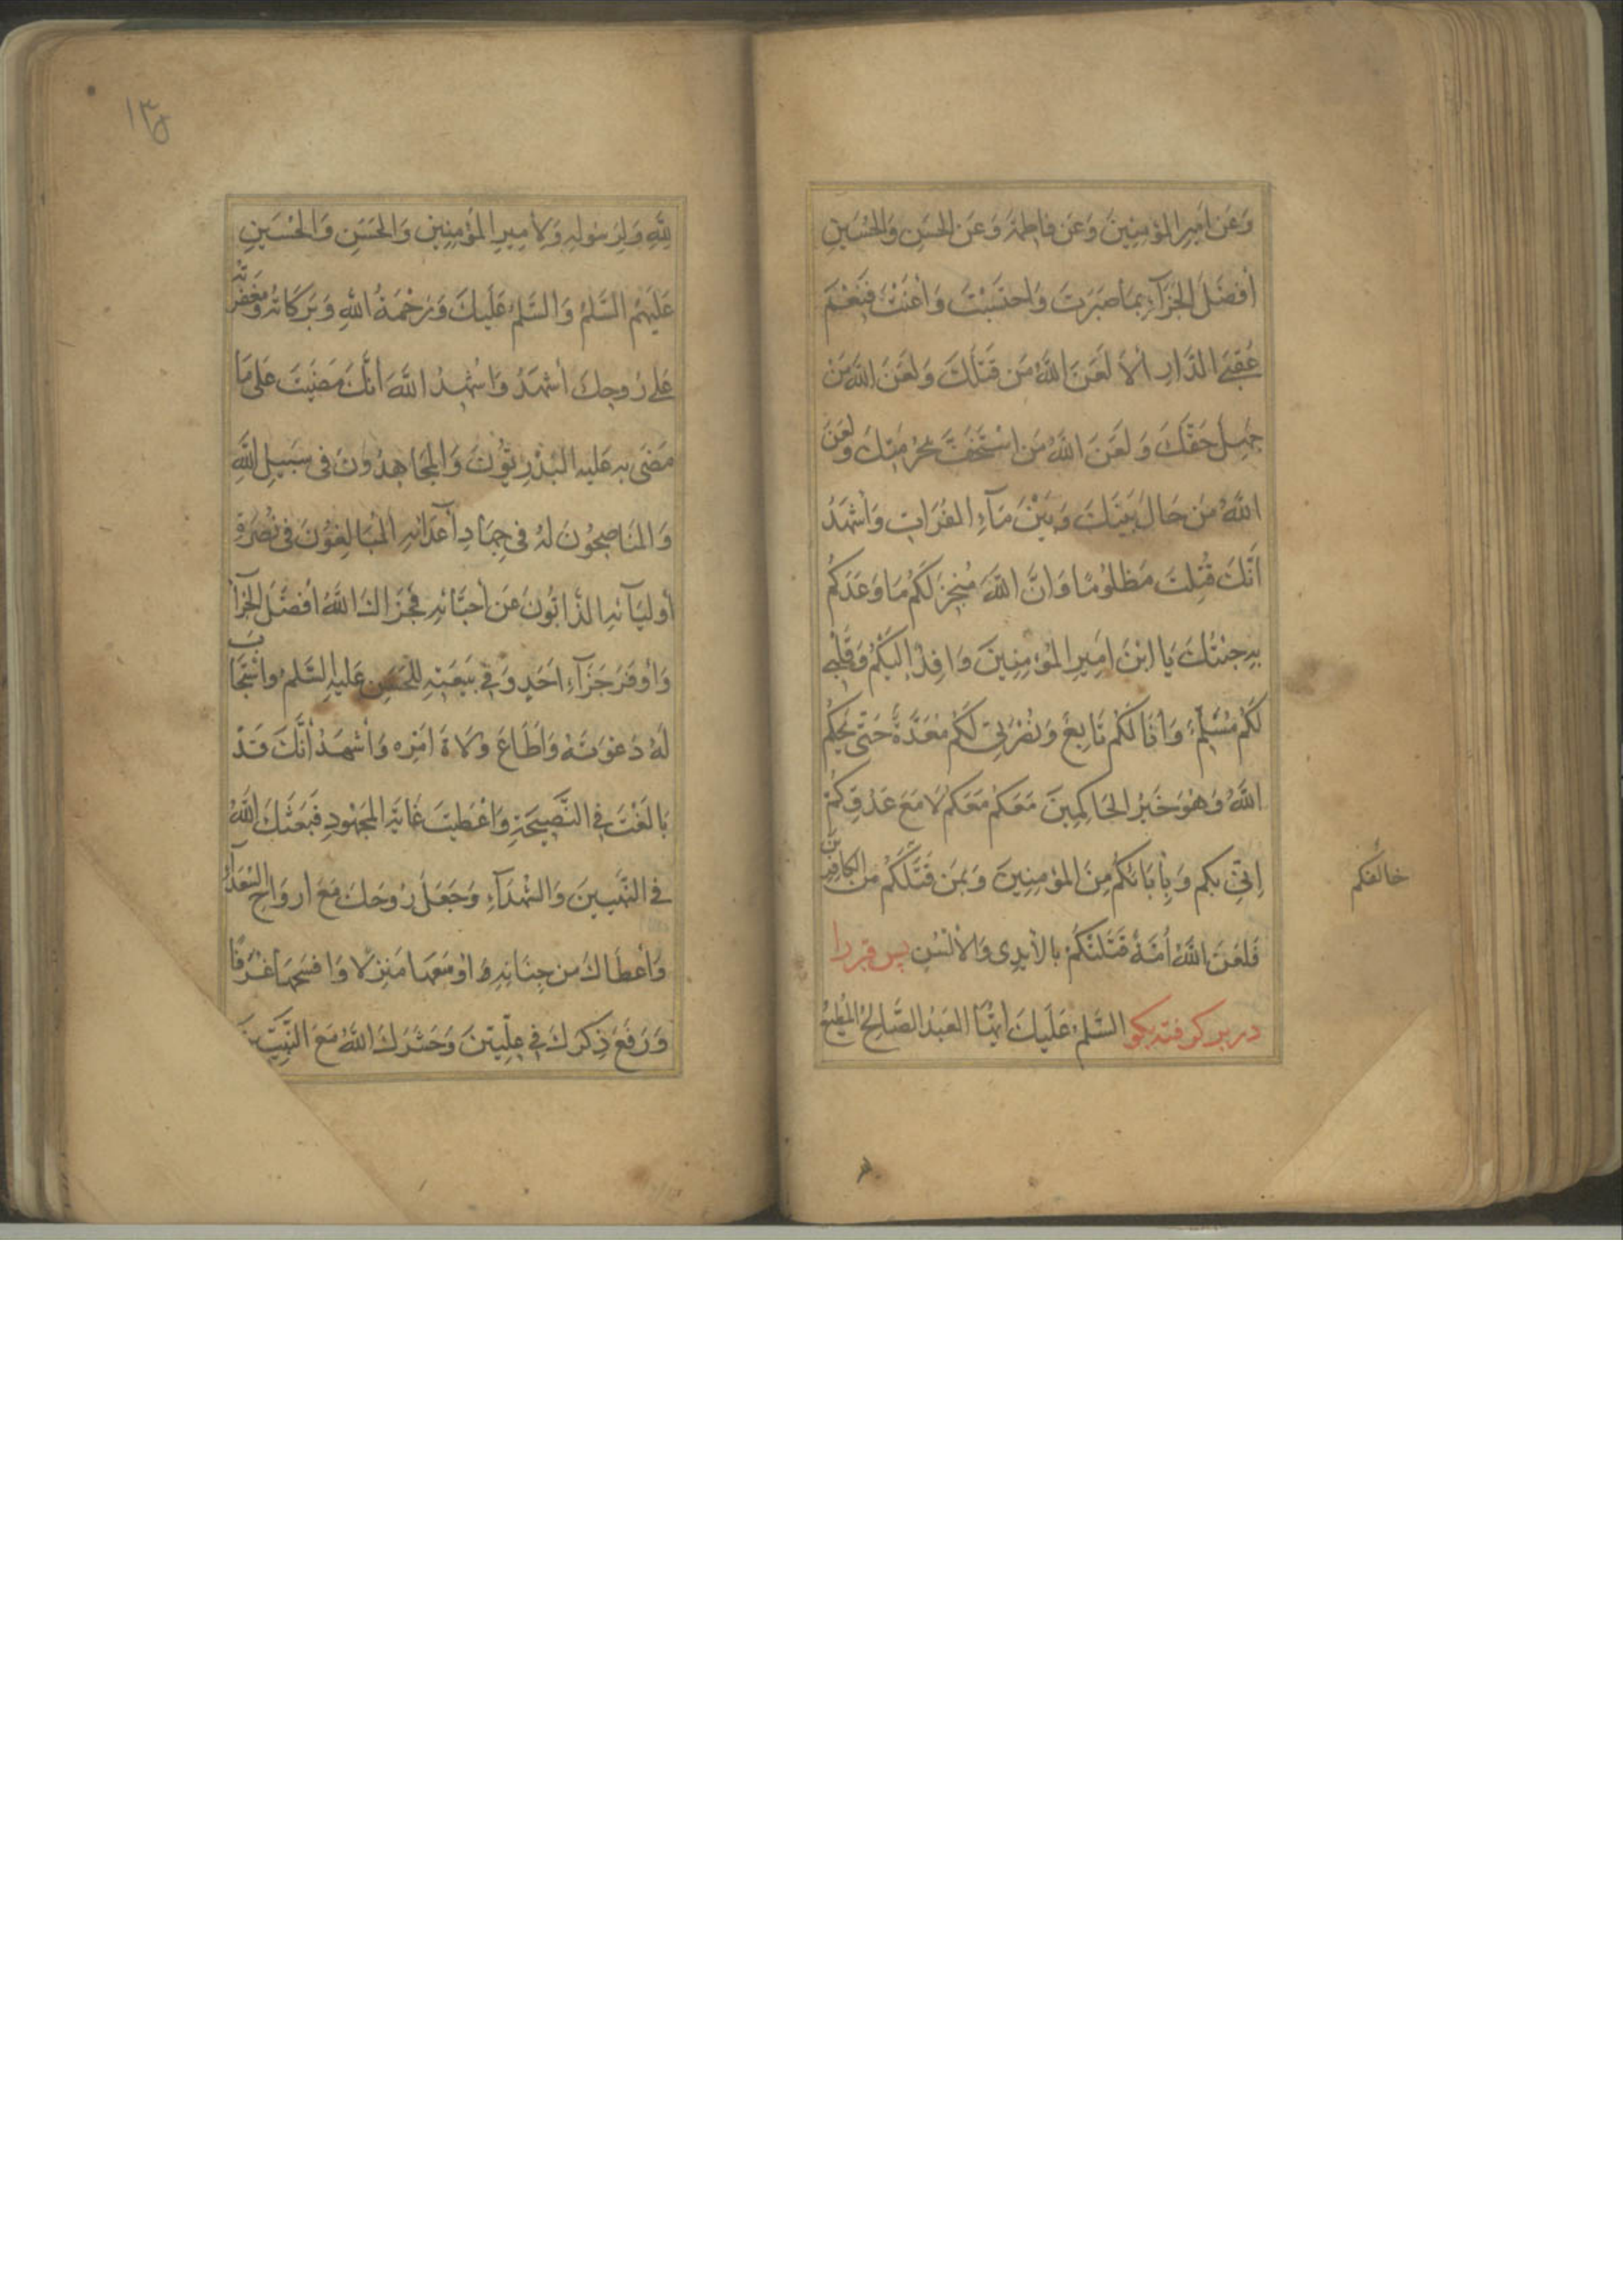 وَعَن اَمِيرِ المُؤمِنِينَ وَعَن فاطِمَةَ وَعَن الحَسَنِ وَالحُسَينِ
أَفضَلَ الجَزَآءِ بِمَا صَبَرتَ وَاحتَسَبْتَ وَأَعَنْتَ فَنِعْمَ
عُقبَى الدَّارِ ألَا لَعَنَ اللهُ مَن قَتَلَكَ وَلَعَنَ اللهُ مَنْ
جَهِلَ حَقَّكَ وَلَعَنَ اللهُ مَنِ اسْتَخَفَّ بِحُرمَتِكَ وَلَعَنَ
اللهُ مَن حَالَ بَينَكَ وَبَيْنَ مَآءِ الفُرَاتِ وَأَشْهَدُ
اَنَّكَ قُتِلتَ مَظلُومًا وَانَّ اللهَ مُنجِزٌ لَكُم مَا وَعَدَكُم
بِهِ جِئتُكَ يَا ابْنَ اَمِيرِ المُؤمِنِينَ وَافِدًا اِلَيكُمْ وَقَلبِى
لَكُم مُسَلِّمٌ وَأَنَا لَكُم تَابِعٌ وَنُصْرَتِى لَكُم مُعَدَّةٌ حَتّى يَحكُمَ
اللهُ وَهُوَ خَيرُ الحَاكِمِينَ مَعَكُم مَعَكُم لَا مَعَ عَدُوِّكُمْ
اِنِّى بِكُم وَبِآبَائكُم مِنَ المُؤمِنِينَ وَبِمَن قَتَلَكُم مِنَ الكافِرِينَ
خالفكم
فَلَعَنَ اللهُ أُمَّةً قَتَلَتكُمْ بِالأَيدِى وَالأَلسُنِ پس قبر را
در بر كرفته بكو السَّلمُ عَلَيكَ اَيُّهَا العَبدُ الصَّالِحُ المُطِيعُ
لِلّهِ وَلِرَسُولِهِ وَلِأَمِيرِ المُؤمِنِينَ وَالحَسَنِ وَالحُسَينِ
عَلَيهِمُ السَّلمُ وَالسَّلمُ عَلَيكَ وَرَحْمَةُ اللهِ وَبَرَكَاتُهُ وَمَغفِرَتُهُ
عَلى رُوحِكَ أَشهَدُ وَاُشْهِدُ اللهَ اَنَّكَ مَضَيتَ عَلى مَا
مَضَى بِهِ عَلَيهِ البَدْرِيُّونَ وَالمُجَاهِدُونَ فى سَبِيلِ اللهِ
وَالمُنَاصِحُونَ لَهُ فى جِهَادِ أَعدَائهِ المُبَالِغُونَ فى نُصْرَةِ
أَولِيَآئهِ الذَّابُّونَ عَن أَحِبَّائهِ فَجَزَاكَ اللهُ أَفضَلَ الجَزَآءِ
وَأَوفَرَ جَزَآءِ اَحَدٍ وَفى بِبَيعَتِهِ لِلحَسَنِ عَلَيهِ السَّلمُ وَاسْتَجَابَ
لَهُ دَعْوَتَهُ وَاَطَاعَ وُلَاةَ اَمْرِه وَأَشْهَدُ أَنَّكَ قَدْ
بَالَغْتَ فِى النَّصِيحَةِ وَاَعْطَيتَ غَايَةَ المَجهُودِ فَبَعَثَكَ اللهُ
فى النَّبِيينَ وَالشُّهَدَآءِ وَجَعَلَ رُوحَكَ مَعَ اروَاحِ السُّعَدَآءِ
وَأَعطَاكَ مِن جِنَانِهِ أَوسَعَهَا مَنزِلًا وَأَفسَحَهَا غُرَفًا
وَرَفَعَ ذِكرَكَ فِى عِلِّيِّينَ وَحَشَرَكَ اللهُ مَعَ النَّبِيِّينَ